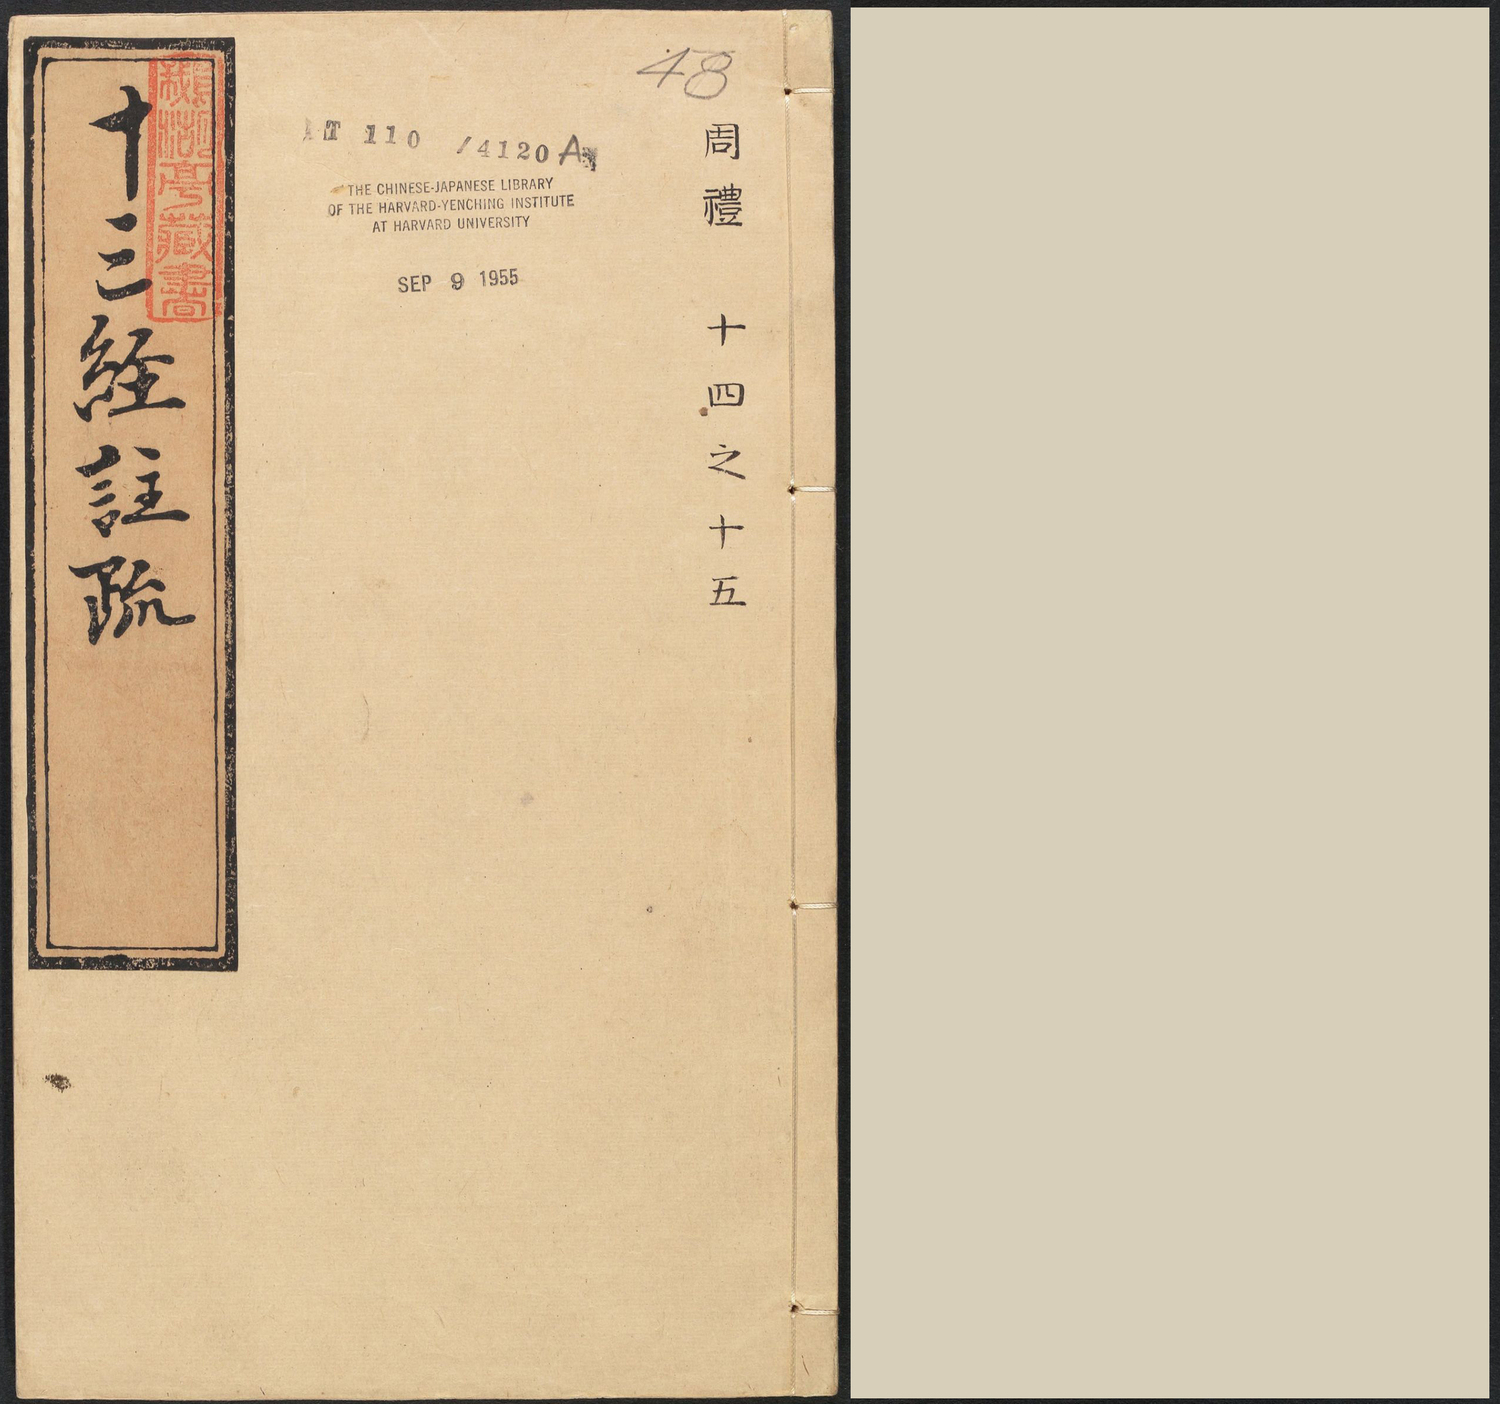 48
周禮 十四之十五
T 110 /4120 A
THE CHINESE-JAPANESE LIBRARY
OF THE HARVARD-YENCHING INSTITUTE
AT HARVARD UNIVERSITY
SEP 9 1955
十三經註疏
亭藏書